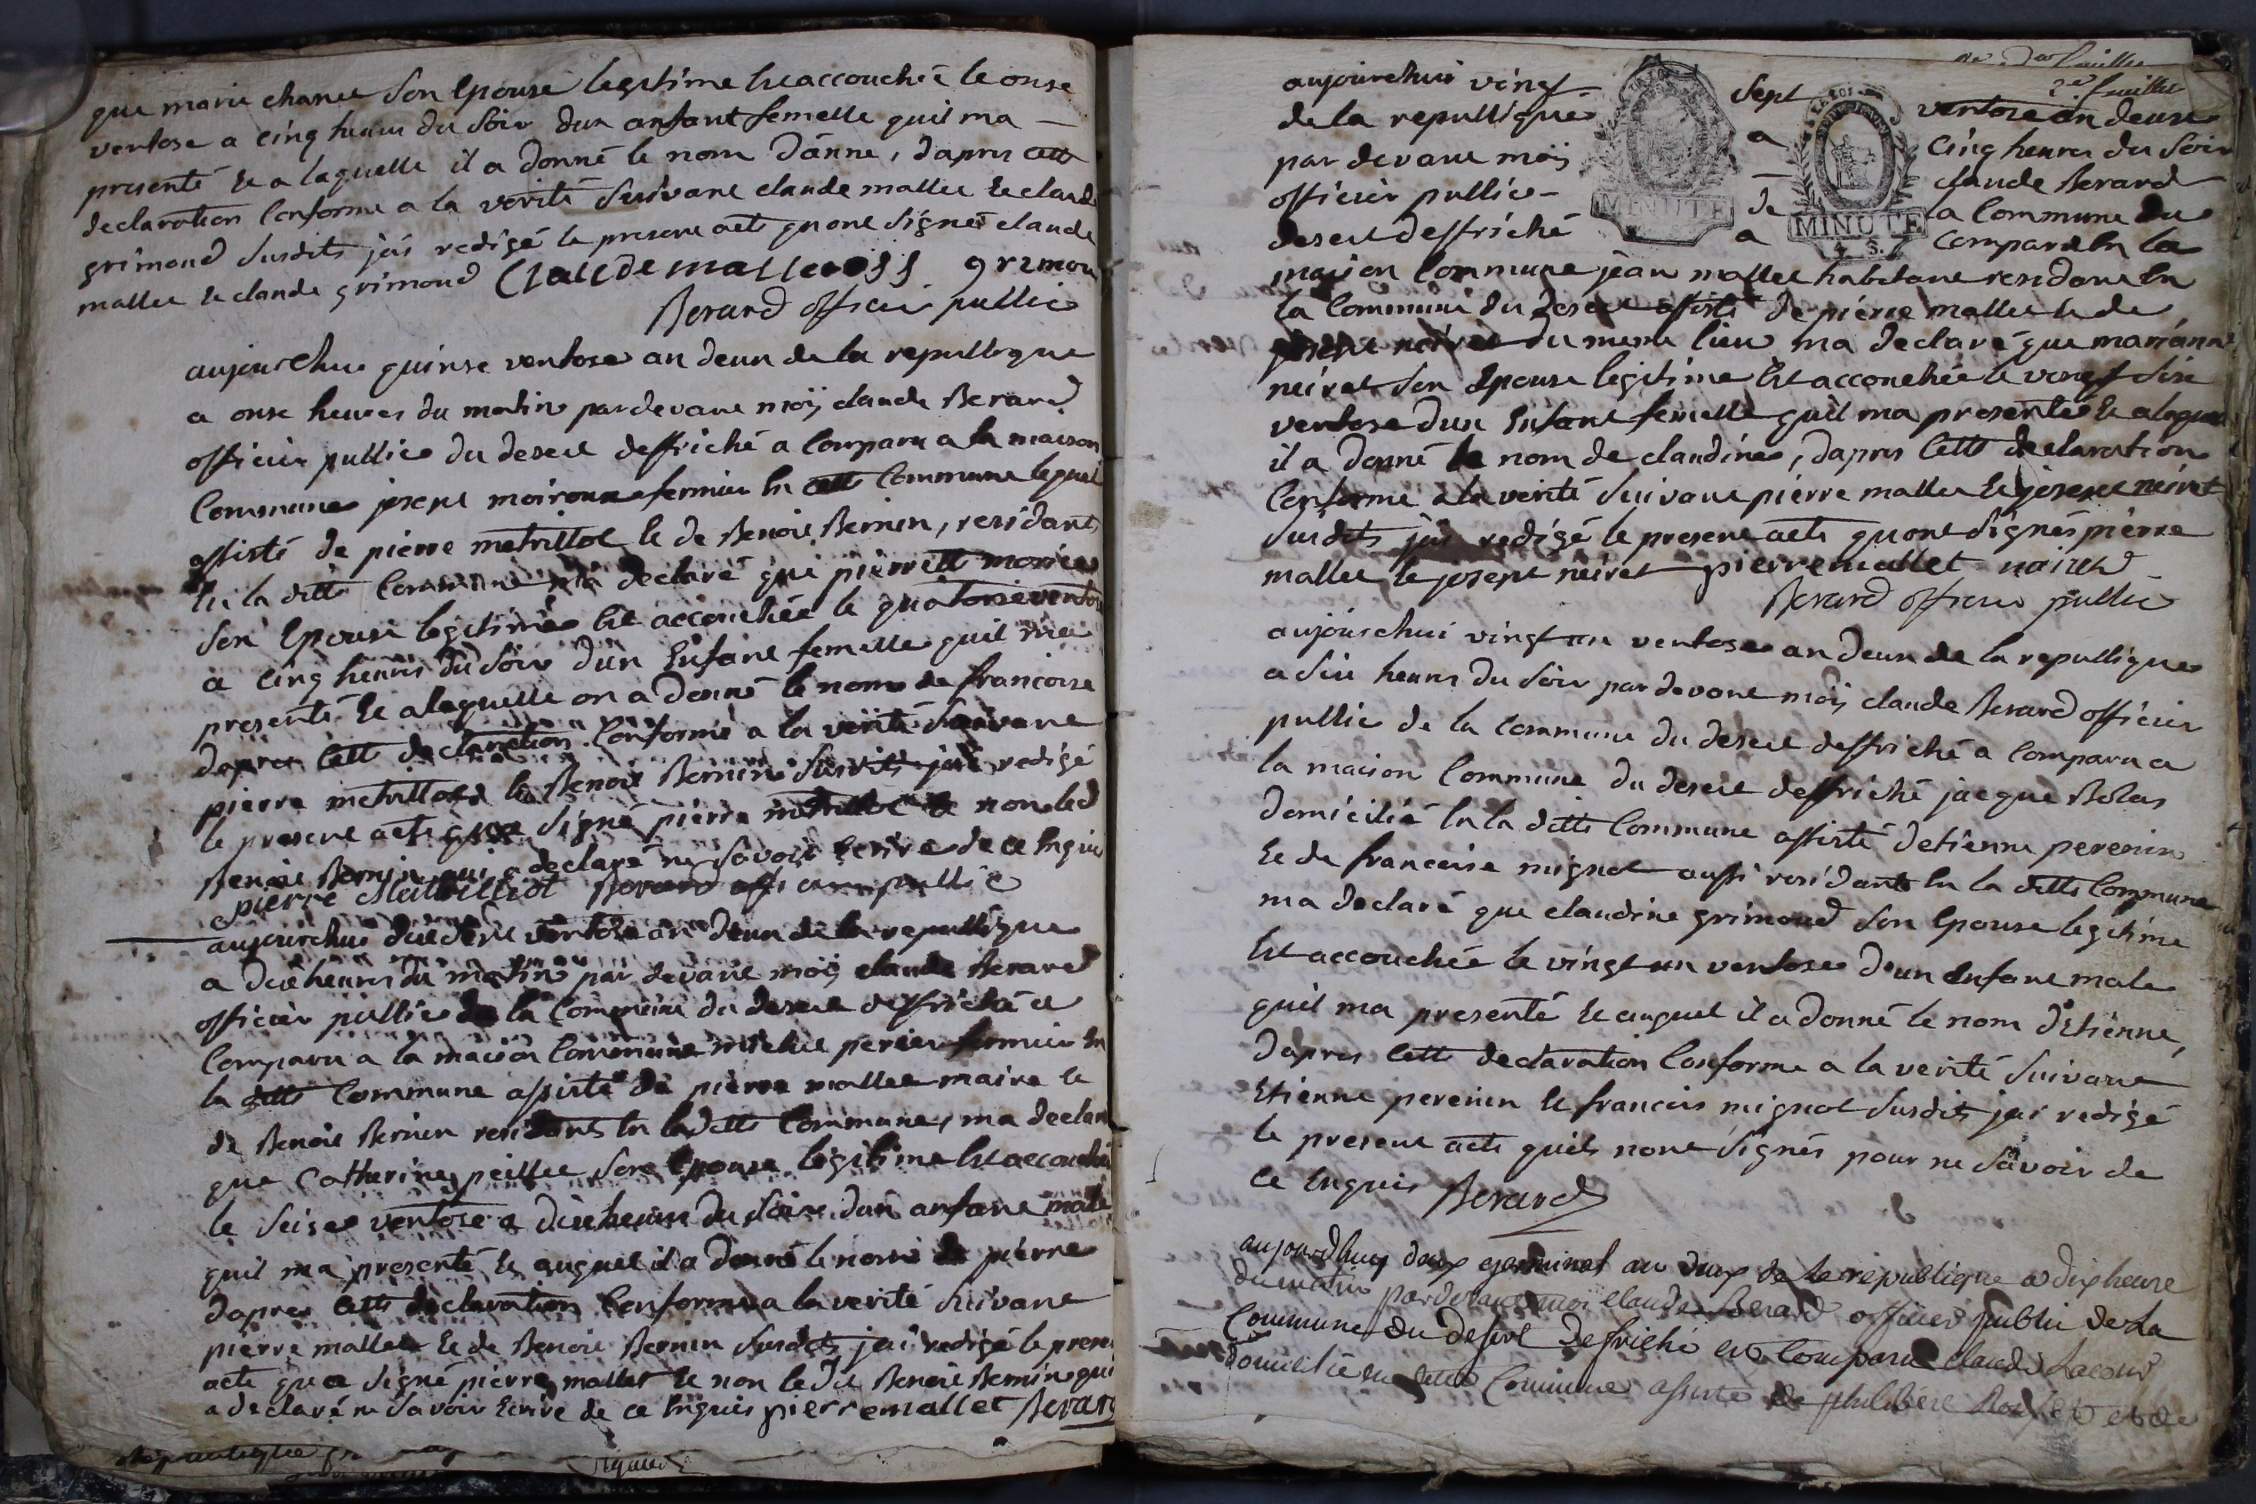 que marie chanee son epouse legitime est accouchée le onse
ventose a cinq heures du soir dun anfant femelle quil ma
presenté et a laquelle il a donné le nom d'anne, dapres cette
declaration conforme a la verité suivant claude mallet et claude
grimond susdits jai redigé le present acte quont signés claude
mallet et claude grimond Claude mallet grimon
Berard officier public
aujourdhui quinse ventose an deux de la republique
a onse heures du matin pardevant moi claude Berard
officier public du desert deffriché a comparu a la maison
commune joseph moiroux fermier en cette commune lequel
assisté de pierre metrilliot et de Benoit Bernin, residants
en la ditte commune ma declaré que pierrette
son epouse legitime est accouchée le quatorse ventose
a cinq heures du soir d'un enfant femelle quil ma
presenté et a laquelle on a donné le nom de francoise
dapres cette declaration conforme a la verité suivant
pierre metrilliot et Benoit Bernin susdits jai redigé
le present acte qua signé pierre metrilliot et non led
Benoit Bernin qui a declaré ne savoir ecrire de ce enquis
pierre Matrilliot Berard officier public
aujourdhui dix sept ventose an deux de la republique
a dix heures du matin par devant moi claude Berard
officier public de la commune du desert deffriché a
comparu a la maison commune michel perier fermier en
la ditte commune assisté de pierre mallet maire et
de Benoit Bernin residants en laditte commune, ma declaré
que Catherine peillet son epouse legitime est accouchée
le seise ventose a dix heures du soir dun anfant male
quil ma presenté et auquel il a donné le nom de pierre
dapres cette declaration conforme a la verité suivant
pierre mallet et de Benoit Bernin susdits jai redigé le present
acte qua signé pierre mallet et non le dit Benoit Bernin qui
a declaré ne savoir ecrire de ce enquis pierre mallet Berard
2e feuillet
aujourdhui vingt sept ventose an deux
de la republique a cinq heures du soir
par devant moi claude Berard
officier public de la commune du
desert deffriché a comparu en la
MINUTE
MINUTE
4. S.
maison commune jean mallet habitant residant en
la commune du desert assisté de pierre mallet et de
joseph neiret du meme lieu ma declaré que marianne
neiret son epouse legitime est accouchée le vingt sixe
ventose dun enfant femelle quil ma presenté et a laquelle
il a donné le nom de claudine, dapres cette declaration
conforme a la verité suivant pierre mallet et joseph neiret
susdits jai redigé le present acte quont signés pierre
mallet et joseph neiret pierre mallet nairet
Berard officier public
aujourdhui vingt un ventose an deux de la republique
a six heures du soir par devant moi claude Berard officier
public de la commune du desert deffriché a comparu a
la maison commune du desert deffriché jacque Bolas
domicilié en la ditte commune assisté detienne perenin
et de francoise mignot aussi residants en la ditte commune
ma declaré que claudine grimond son epouse legitime
est accouchée le vingt un ventose d'un enfant male
quil ma presenté et auquel il a donné le nom d'Etienne,
dapres cette declaration conforme a la verité suivant
Etienne perenin et francois mignot susdits jai redigé
le present acte quils nont signés pour ne savoir de
ce enquis Berard
aujourdhuy deux germinal an deux de la republique a dix heure
du matin pardevant moi claude Berard officier public de la
commune du desert defriché est comparu claude Lacour
domicilié en cette commune assisté de philibert et de